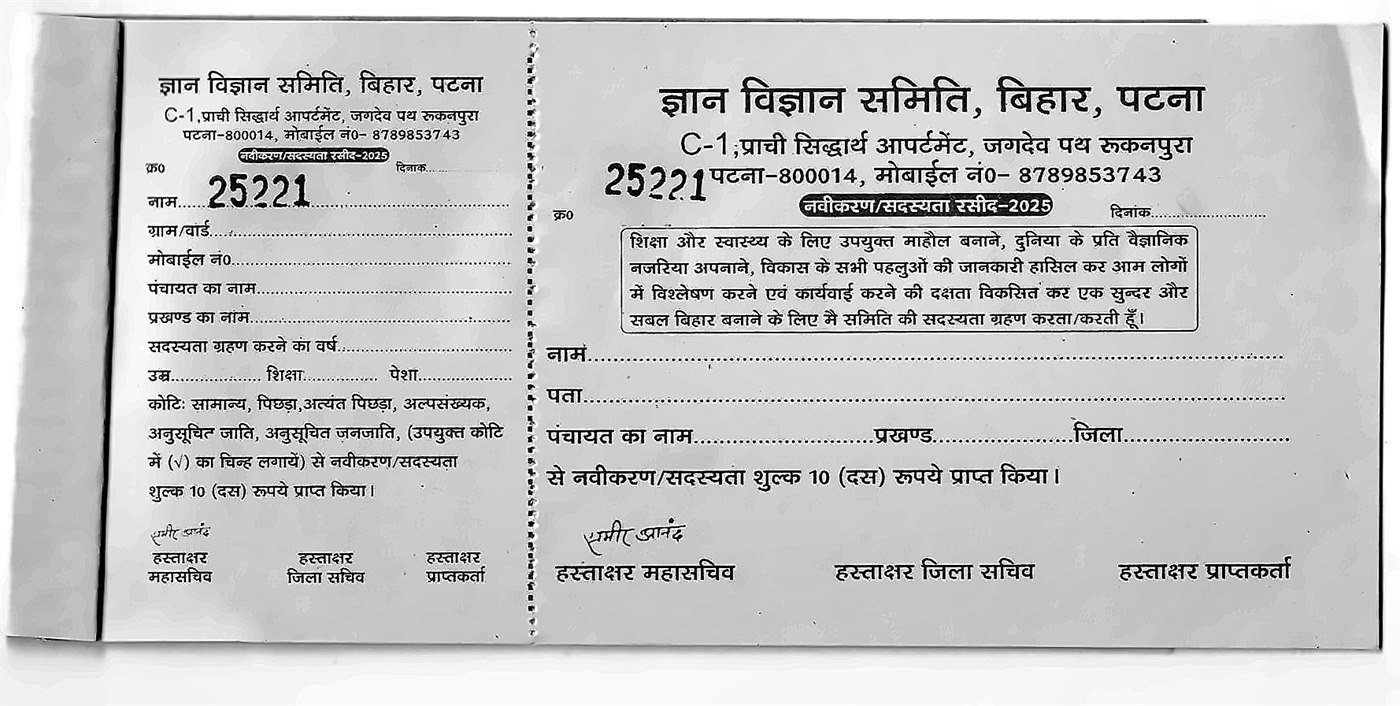 ज्ञान विज्ञान समिति, बिहार, पटना
C-1,प्राची सिद्धार्थ आपर्टमेंट, जगदेव पथ रूकनपुरा
पटना-800014, मोबाईल नं0- 8789853743
नवीकरण/सदस्यता रसीद-2025
क्र0 25221 दिनांक.............
नाम.............
ग्राम/वार्ड.............
मोबाईल नं0.............
पंचायत का नाम.............
प्रखण्ड का नाम.............
सदस्यता ग्रहण करने का वर्ष.............
उम्र............. शिक्षा............. पेशा.............
कोटिः सामान्य, पिछड़ा,अत्यंत पिछड़ा, अल्पसंख्यक,
अनुसूचित जाति, अनुसूचित जनजाति, (उपयुक्त कोटि
में (√) का चिन्ह लगायें) से नवीकरण/सदस्यता
शुल्क 10 (दस) रूपये प्राप्त किया।
समीर आनंद
हस्ताक्षर हस्ताक्षर हस्ताक्षर
महासचिव जिला सचिव प्राप्तकर्ता
ज्ञान विज्ञान समिति, बिहार, पटना
C-1,प्राची सिद्धार्थ आपर्टमेंट, जगदेव पथ रूकनपुरा
पटना-800014, मोबाईल नं0- 8789853743
नवीकरण/सदस्यता रसीद-2025
क्र0 25221 दिनांक.............
शिक्षा और स्वास्थ्य के लिए उपयुक्त माहौल बनाने, दुनिया के प्रति वैज्ञानिक
नजरिया अपनाने, विकास के सभी पहलुओं की जानकारी हासिल कर आम लोगों
में विश्लेषण करने एवं कार्यवाई करने की दक्षता विकसित कर एक सुन्दर और
सबल बिहार बनाने के लिए मै समिति की सदस्यता ग्रहण करता/करती हूँ।
नाम.............
पता.............
पंचायत का नाम.............प्रखण्ड.............जिला.............
से नवीकरण/सदस्यता शुल्क 10 (दस) रूपये प्राप्त किया।
समीर आनंद
हस्ताक्षर महासचिव हस्ताक्षर जिला सचिव हस्ताक्षर प्राप्तकर्ता